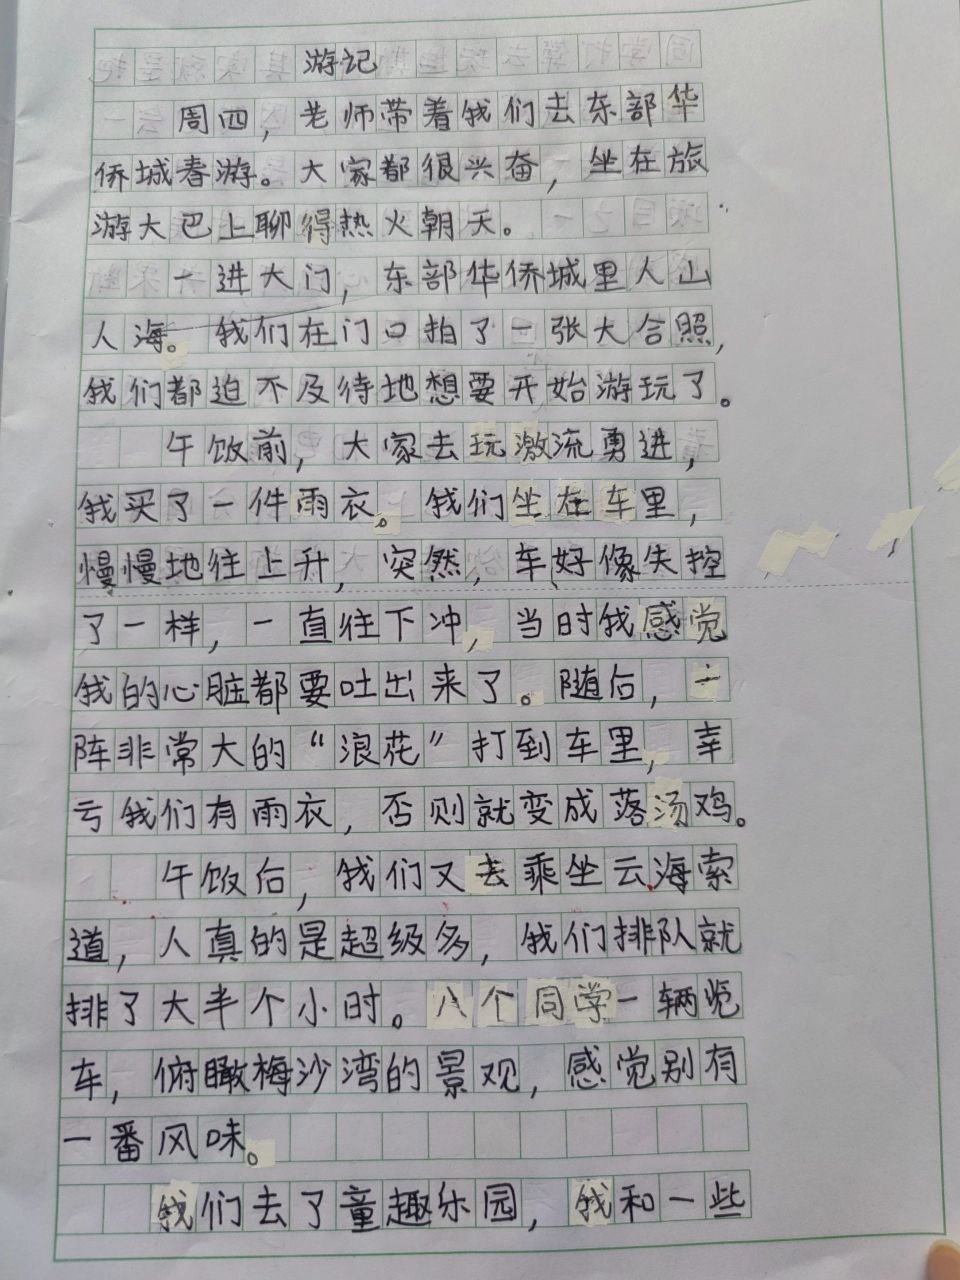 游记
周四，老师带着我们去东部华
侨城春游。大家都很兴奋，坐在旅
游大巴上聊得热火朝天。
一进大门，东部华侨城里人山
人海。我们在门口拍了一张大合照，
我们都迫不及待地想要开始游玩了。
午饭前，大家去玩激流勇进，
我买了一件雨衣。我们坐在车里，
慢慢地往上升，突然，车好像失控
了一样，一直往下冲，当时我感觉
我的心脏都要吐出来了。随后，一
阵非常大的“浪花”打到车里，幸
亏我们有雨衣，否则就变成落汤鸡。
午饭后，我们又去乘坐云海索
道，人真的是超级多，我们排队就
排了大半个小时。八个同学一辆览
车，俯瞰梅沙湾的景观，感觉别有
一番风味。
我们去了童趣乐园，我和一些